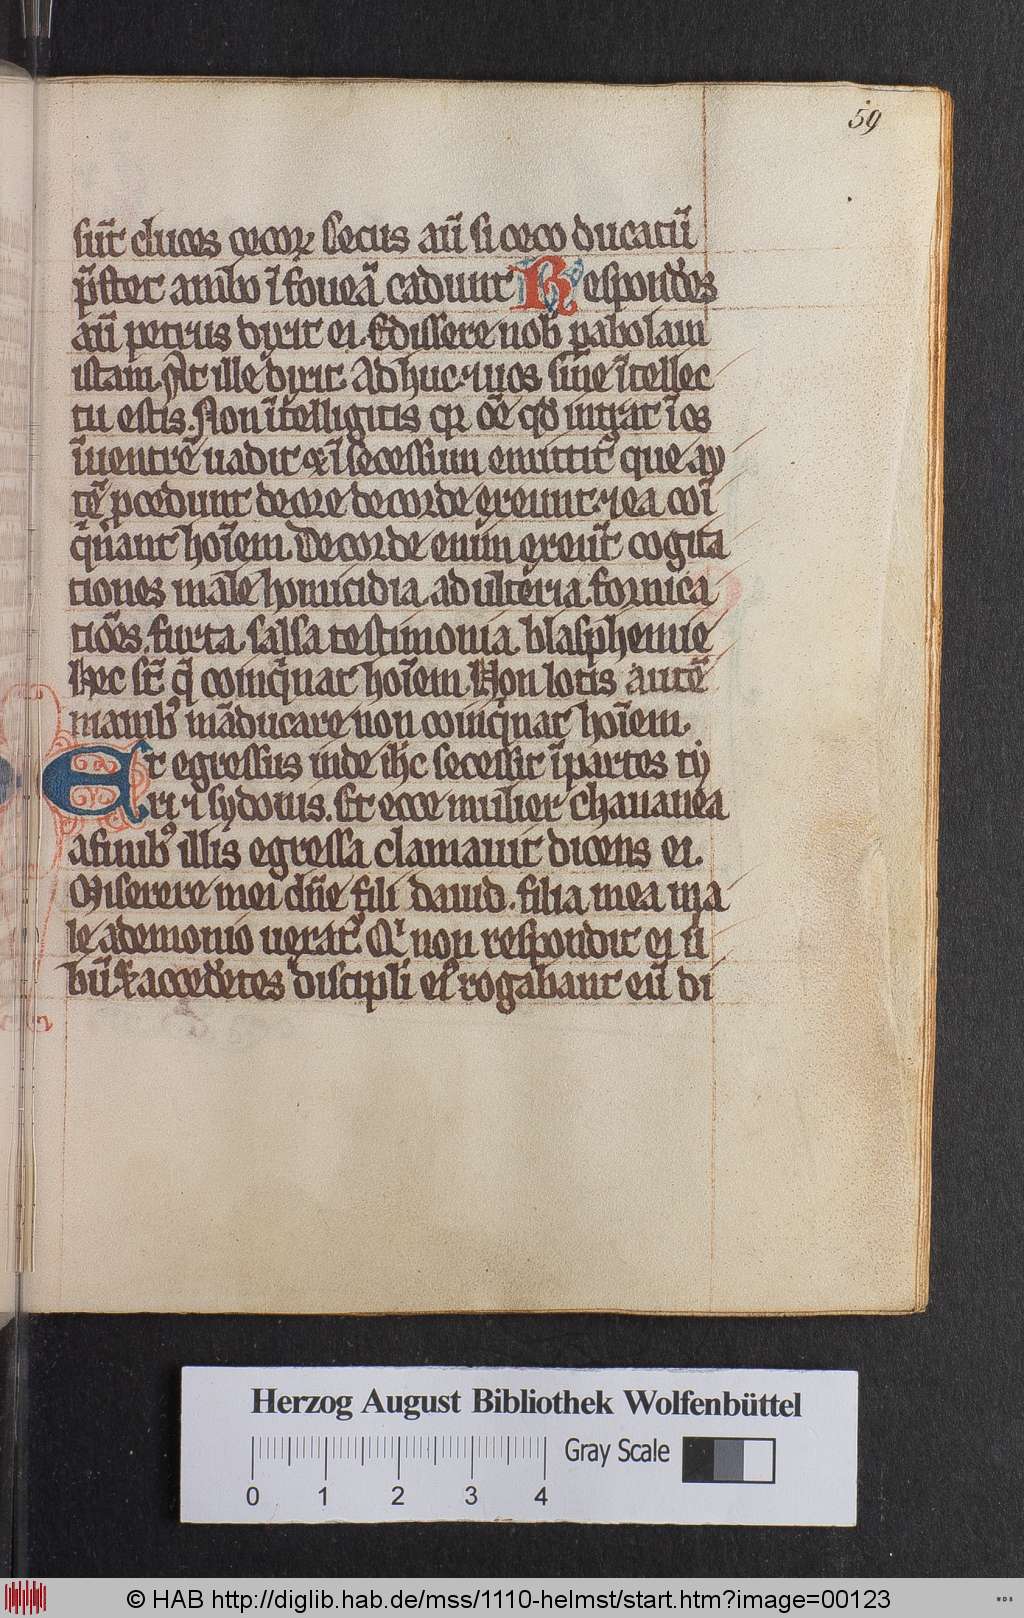 59
sūt duces cecoꝝ Cecus aū si ceco ducatū
p̄stet ambo ī foueā cadunt Respondēs
aū petrus dixit ei. Edissere nob̄ pabolam
istam. At ille dixit. Ad huc ⁊ uos sine ītellec
tu estis. Non ītelligitis qꝛ oē qd̄ intrat ī os
ī uentrē uadit ⁊ ī secessum emittit᷑ que aū
tē ꝓcedunt de ore de corde exeunt. ⁊ ea coī
q̄nant hoīem. De corde enim exeūt cogita
tiones male homicidia. adulteria. fornica
tiōes. furta. falsa testimonia. blasphemie
Hec st̄ q̄ coinq̄nat hoīem. Non lotis autē
manib⁹ māducare non coinq̄nat hoīem.
Et egressus inde ih̄c secessit ī partes ty
ri ⁊ sydonis. Et ecce mulier chananea
a finib⁹ illis egressa clamauit dicens ei.
Miserere mei dn̄e fili dauid. filia mea ma
le a demonio uexat᷑. Qi non respondit ei ū
bū. Et accedētes discipli ei⁹ rogabant eū di
Herzog August Bibliothek Wolfenbüttel
Gray Scale
0 1 2 3 4
© HAB http://diglib.hab.de/mss/1110-helmst/start.htm?image=00123